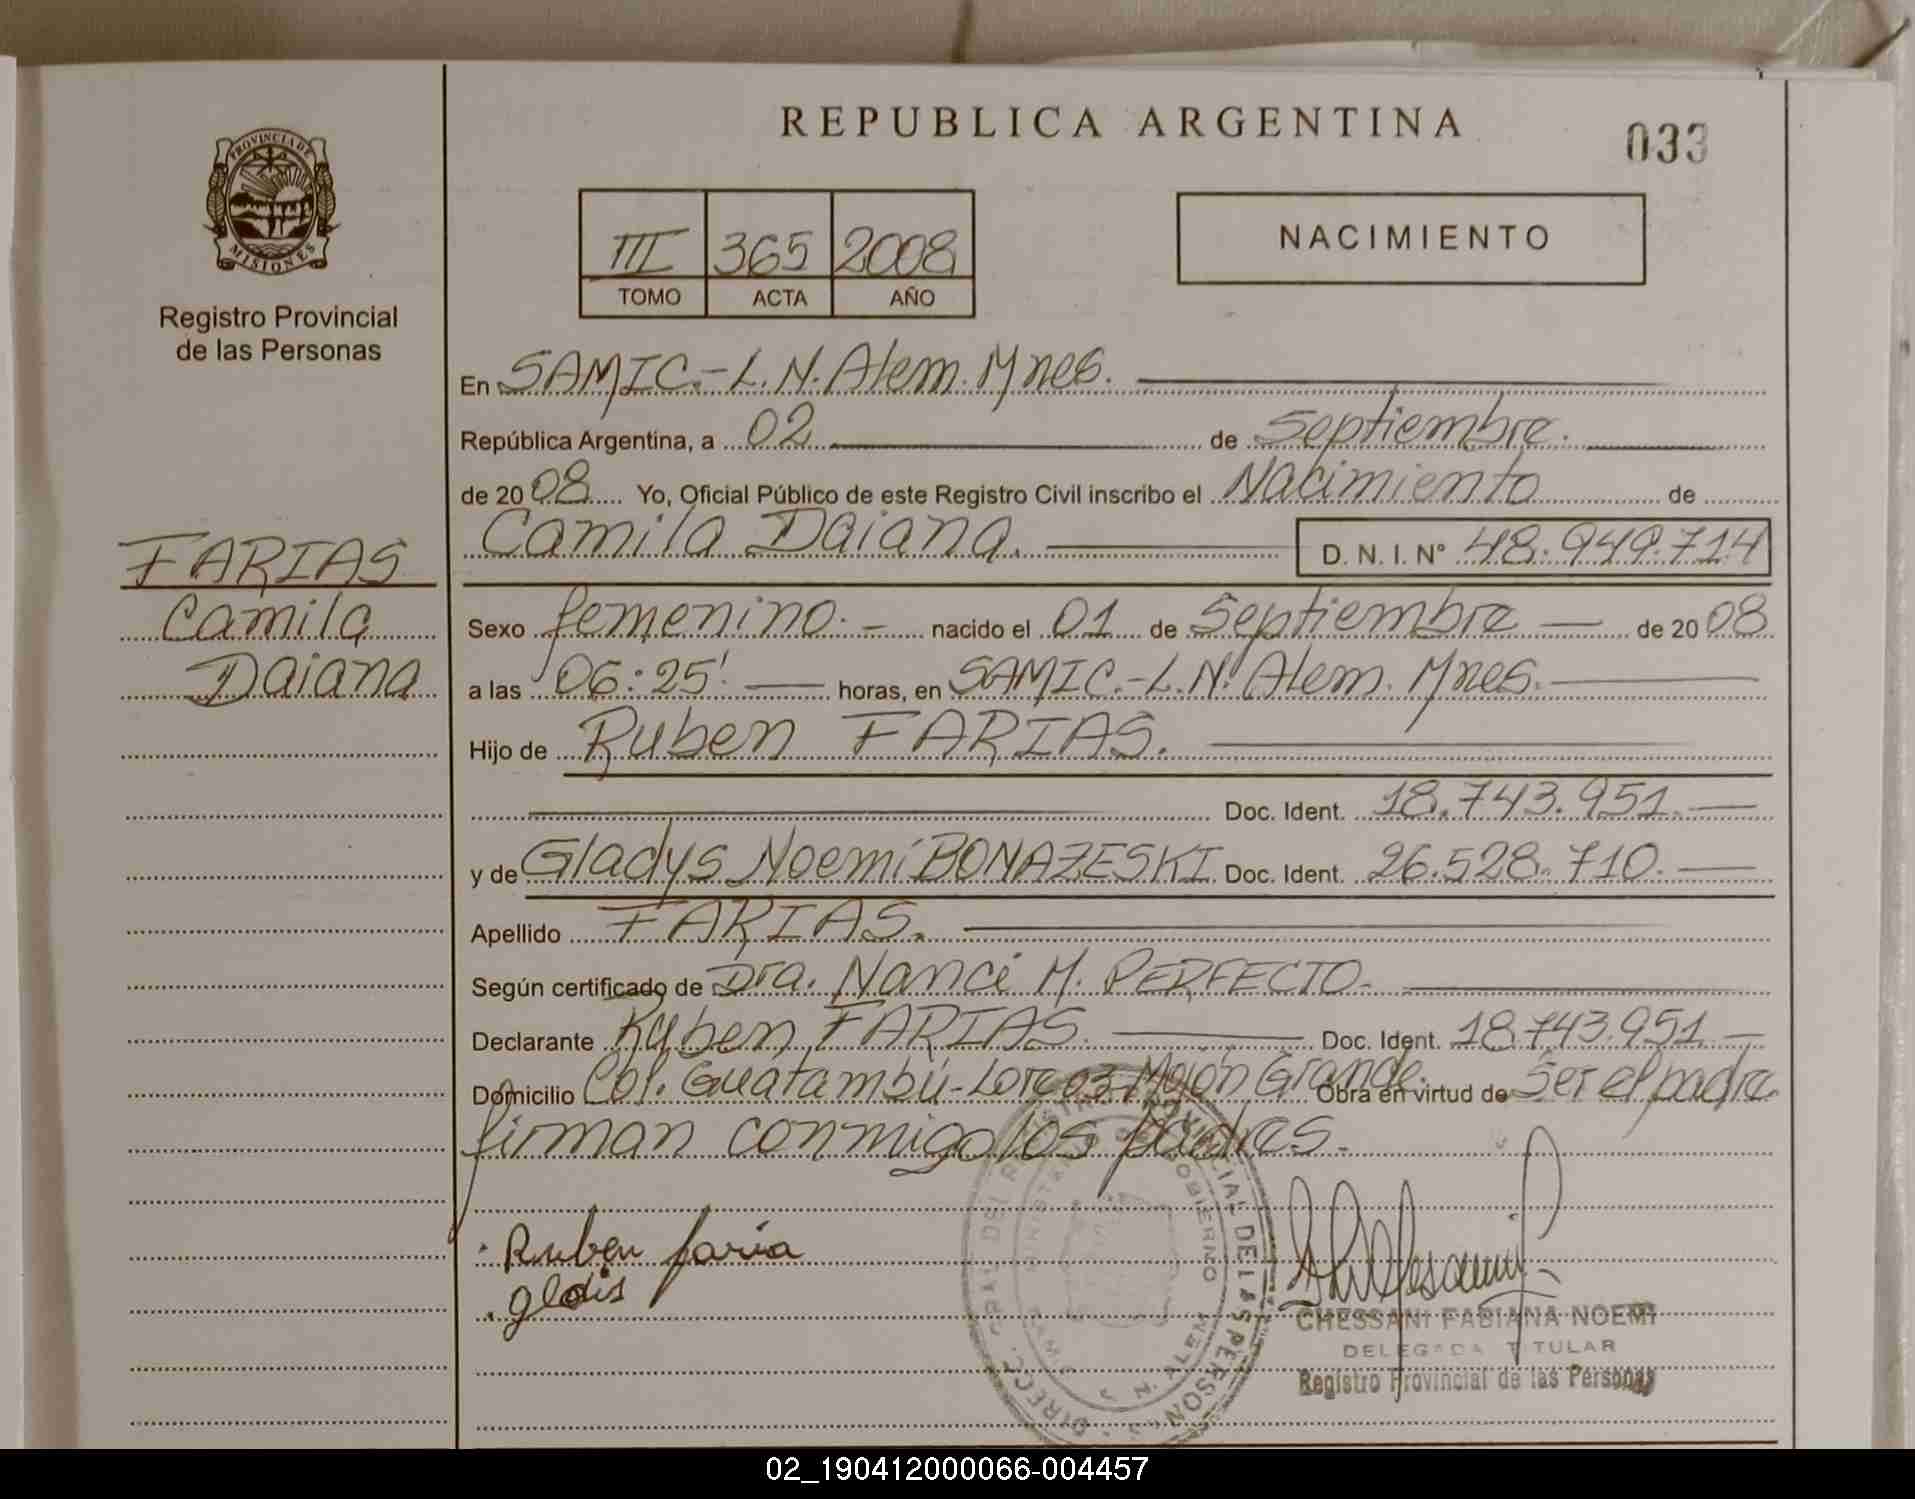 REPUBLICA ARGENTINA
033
PROVINCIA DE MISIONES
Registro Provincial
de las Personas
III 365 2008
TOMO ACTA AÑO
NACIMIENTO
En SAMIC.-L.N.Alem.Mnes.
República Argentina, a 02 de Septiembre.
de 2008 Yo, Oficial Público de este Registro Civil inscribo el Nacimiento de
Camila Daiana. D.N.I.N° 48.949.714
FARIAS
Camila
Daiana
Sexo femenino.- nacido el 01 de Septiembre de 2008
a las 06:25' horas, en SAMIC.-L.N.Alem. Mnes.
Hijo de Ruben FARIAS.
Doc. Ident. 18.743.951.
y de Gladys Noemí BONAZESKI Doc. Ident. 26.528.710.
Apellido FARIAS.
Según certificado de Dra. Nanci M. PERFECTO.
Declarante Ruben FARIAS. Doc. Ident. 18.743.951
Domicilio Col. Guatambú- Mojón Grande. Obra en virtud de Ser el padre
firman conmigo los padres.
Ruben faria
gladis
CHESSANI FABIANA NOEMI
DELEGADA TITULAR
Registro Provincial de las Personas
02_190412000066-004457